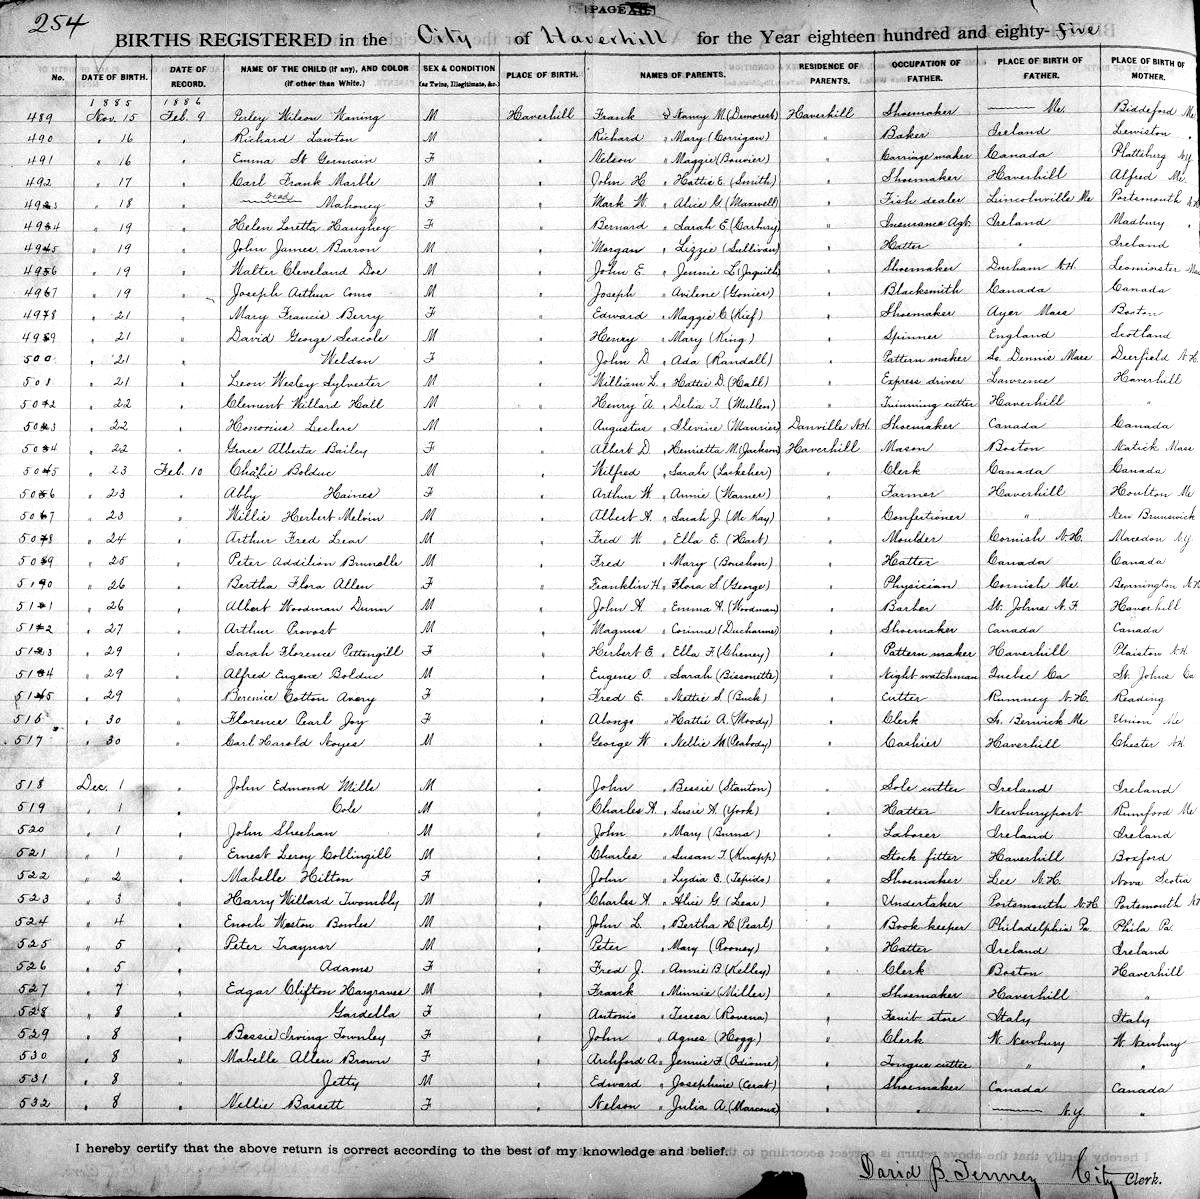 254
PAGE
BIRTHS REGISTERED in the City of Haverhill for the Year eighteen hundred and eighty-five
No. DATE OF BIRTH. DATE OF RECORD. NAME OF THE CHILD (if any), AND COLOR (if other than White.) SEX & CONDITION (as Twins, Illegitimate, &c.) PLACE OF BIRTH. NAMES OF PARENTS. RESIDENCE OF PARENTS. OCCUPATION OF FATHER. PLACE OF BIRTH OF FATHER. PLACE OF BIRTH OF MOTHER.
1885 1886
489 Nov. 15 Feb. 9 Perley Wilson Waning M Haverhill Frank & Nancy M (Demorest) Haverhill Shoemaker Me. Biddeford Me
490 " 16 " Richard Lawton M " Richard " Mary (Corrigan) " Baker Ireland Lewiston "
491 " 16 " Emma St Germain F " Nelson " Maggie (Bouvier) " Carriage maker Canada Plattsburg N.Y.
492 " 17 " Carl Frank Marble M " John H. " Hattie E. (Smith) " Shoemaker Haverhill Alfred Me.
493 " 18 " Mahoney F " Mark W. " Alice M. (Maxwell) " Fish dealer Lincolnville Me Portsmouth N.H.
494 " 19 " Helen Loretta Haughey F " Bernard " Sarah E. (Carbury) " Insurance Agt. Ireland Madbury "
495 " 19 " John James Barron M " Morgan " Lizzie (Sullivan) " Hatter " Ireland
496 " 19 " Walter Cleveland Doe M " John E. " Jennie L (Jaquith) " Shoemaker Durham N.H. Leominster Mass
497 " 19 " Joseph Arthur Como M " Joseph " Avilene (Gonier) " Blacksmith Canada Canada
498 " 21 " Mary Francis Berry F " Edward " Maggie C. (Kief) " Shoemaker Ayer Mass Boston
499 " 21 " David George Seacole M " Henry " Mary (King) " Spinner England Scotland
500 " 21 " Weldon F " John D " Ada (Randall) " Pattern maker So. Dennis Mass Deerfield N.H.
501 " 21 " Leon Wesley Sylvester M " William L. " Hattie D. (Hall) " Express driver Lawrence Haverhill
502 " 22 " Clement Willard Hall M " Henry A. " Delia T. (Mullen) " Trimming cutter Haverhill "
503 " 22 " Honorius Leclerc M " Augustus " Elevire (Maurier) Danville N.H. Shoemaker Canada Canada
504 " 22 " Grace Alberta Bailey F " Albert D " Henrietta M. (Jackson) Haverhill Mason Boston Natick Mass
505 " 23 Feb. 10 Bolduc M " Wilfred " Sarah (Laskeher) " Clerk Canada Canada
506 " 23 " Abby Haines F " Arthur W. " Annie (Warner) " Farmer Haverhill Houlton Me
507 " 23 " Willie Herbert Melvin M " Albert A. " Sarah J. (McKay) " Confectioner " New Brunswick
508 " 24 " Arthur Fred Lear M " Fred W. " Ella E. (Hart) " Moulder Cornish N.H. Macedon N.Y.
509 " 25 " Peter Addilion Brunelle M " Fred " Mary (Bourbon) " Hatter Canada Canada
510 " 26 " Bertha Flora Allen F " Franklin H. " Flora S. (George) " Physician Cornish Me. Bennington N.H.
511 " 26 " Albert Woodman Dunn M " John A. " Emma A. (Woodman) " Barber St. Johns N.F. Haverhill
512 " 27 " Arthur Provost M " Magnus " Corinne (Ducharme) " Shoemaker Canada Canada
513 " 29 " Sarah Florence Pettengill F " Herbert E. " Ella F. (Cheney) " Pattern maker Haverhill Plaistow N.H.
514 " 29 " Alfred Eugene Bolduc M " Eugene O. " Sarah (Bissonette) " Night watchman Quebec Ca St. Johns Ca
515 " 29 " Berenice Cotton Avery F " Fred E. " Nettie S. (Buck) " Cutter Rumney N.H. Reading
516 " 30 " Florence Pearl Joy F " Alonzo " Hattie A. (Moody) " Clerk So. Berwick Me Union Me
517 " 30 " Carl Harold Noyes M " George W. " Nellie M (Peabody) " Cashier Haverhill Chester N.H.
518 Dec. 1 " John Edmond Mills M " John " Bessie (Stanton) " Sole cutter Ireland Ireland
519 " 1 " Cole M " Charles A. " Susie A. (York) " Hatter Newburyport Rumford Me
520 " 1 " John Sheehan M " John " Mary (Burns) " Laborer Ireland Ireland
521 " 1 " Ernest Leroy Collingill M " Charles " Susan T. (Knapp) " Stock fitter Haverhill Boxford
522 " 2 " Mabelle Hilton F " John " Lydia E. (Tepido) " Shoemaker Lee N.H. Nova Scotia
523 " 3 " Harry Willard Twombly M " Charles A. " Alice G. (Lear) " Undertaker Portsmouth N.H. Portsmouth N.H.
524 " 4 " Enoch Weston Bowles M " John L. " Bertha H. (Pearl) " Book keeper Philadelphia Pa. Phila Pa.
525 " 5 " Peter Traynor M " Peter " Mary (Rooney) " Hatter Ireland Ireland
526 " 5 " Adams F " Fred J. " Annie B. (Kelley) " Clerk Boston Haverhill
527 " 7 " Edgar Clifton Hargraves M " Frank " Minnie (Miller) " Shoemaker Haverhill "
528 " 8 " Gardella F " Antonio " Teresa (Rovena) " Fruit store Italy Italy
529 " 8 " Bessie Irving Townley F " John " Agnes (Hogg) " Clerk W. Newbury W. Newbury
530 " 8 " Mabelle Allen Brown F " Archford A. " Jennie F. (Odiorne) " Tongue cutter " "
531 " 8 " Jetty M " Edward " Josephine (Cerat) " Shoemaker Canada Canada
532 " 8 " Nellie Bassett F " Nelson " Julia A. (Marcoux) " " N.Y. "
I hereby certify that the above return is correct according to the best of my knowledge and belief.
David B. Tenney City Clerk.